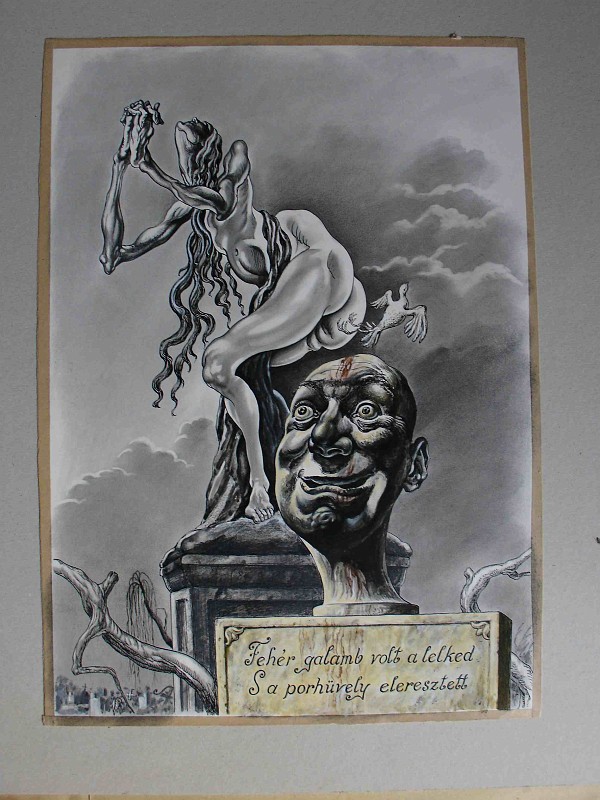 Fehér galamb volt a lelked
S a porhüvely eleresztett